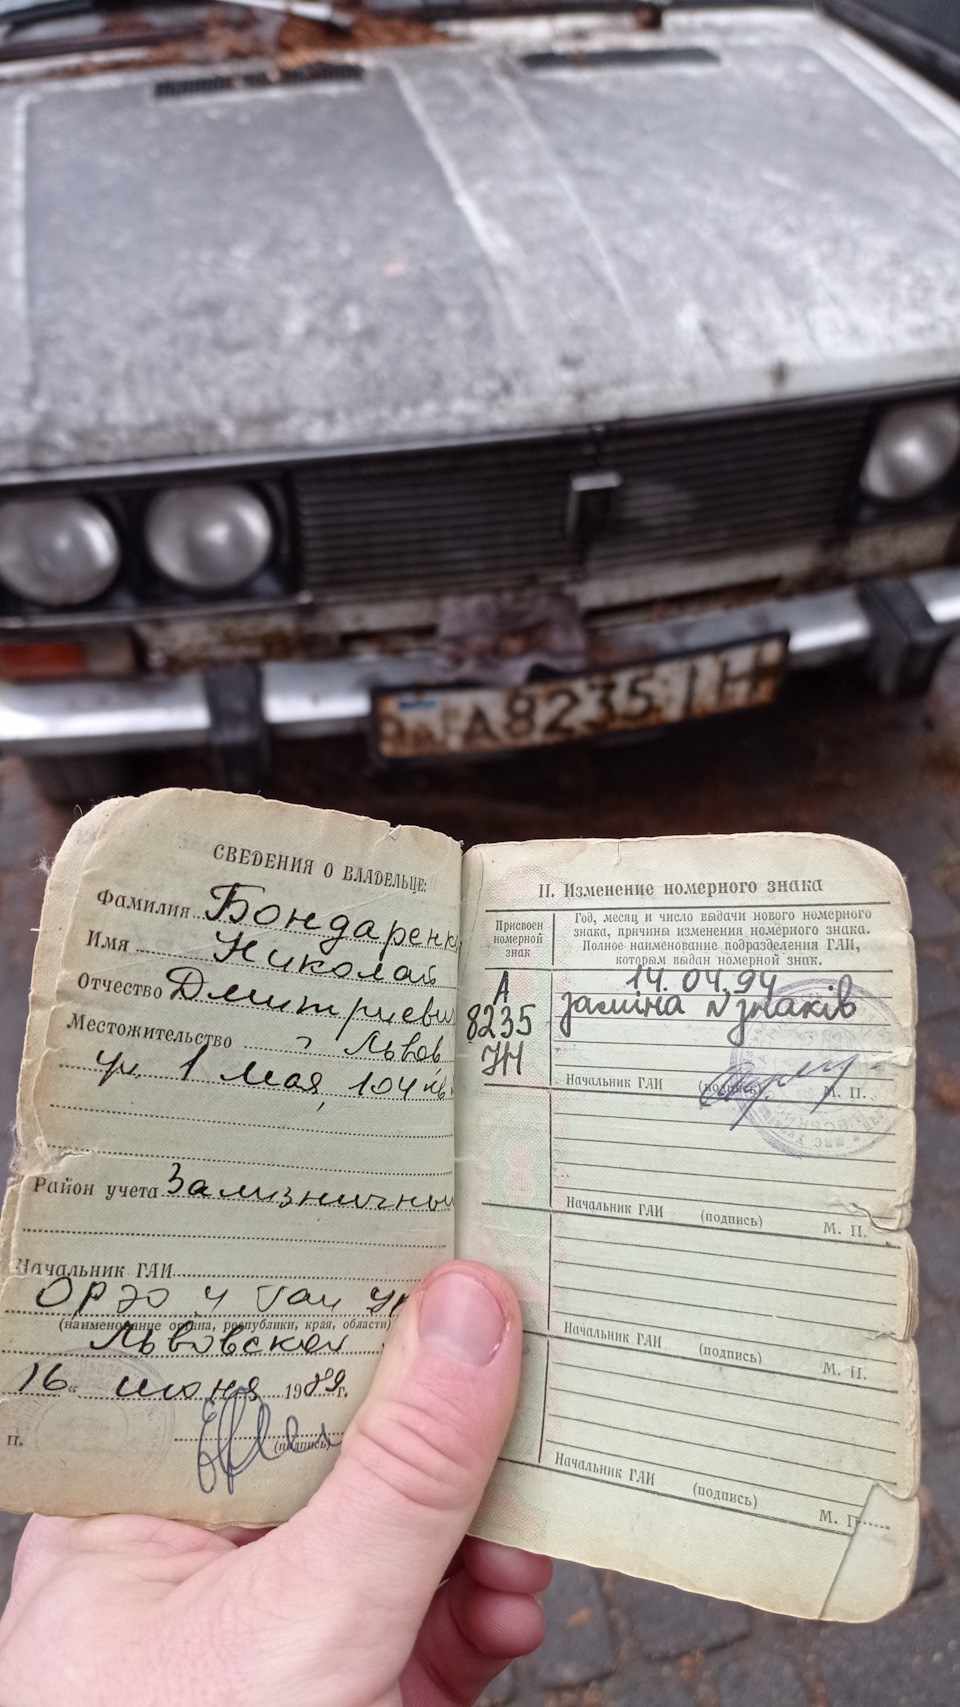 А8235ІН
СВЕДЕНИЯ О ВЛАДЕЛЬЦЕ:
Фамилия Бондаренк
Имя Николай
Отчество Дмитриеви
Местожительство г Львов,
ул. 1 Мая, 104 кв
Район учета Зализничный
Начальник ГАИ
ОРЭО ГАИ
(наименование органа, республики, края, области)
Львовской
16 июня 1989г.
(подпись)
П.
II. Изменение номерного знака
Присвоен номерной знак
Год, месяц и число выдачи нового номерного
знака, причина изменения номерного знака.
Полное наименование подразделения ГАИ,
которым выдан номерной знак.
А
8235
ІН
14.04.94
заміна N знаків
Начальник ГАИ (подпись) М. П.
Начальник ГАИ (подпись) М. П.
Начальник ГАИ (подпись) М. П.
Начальник ГАИ (подпись) М. П